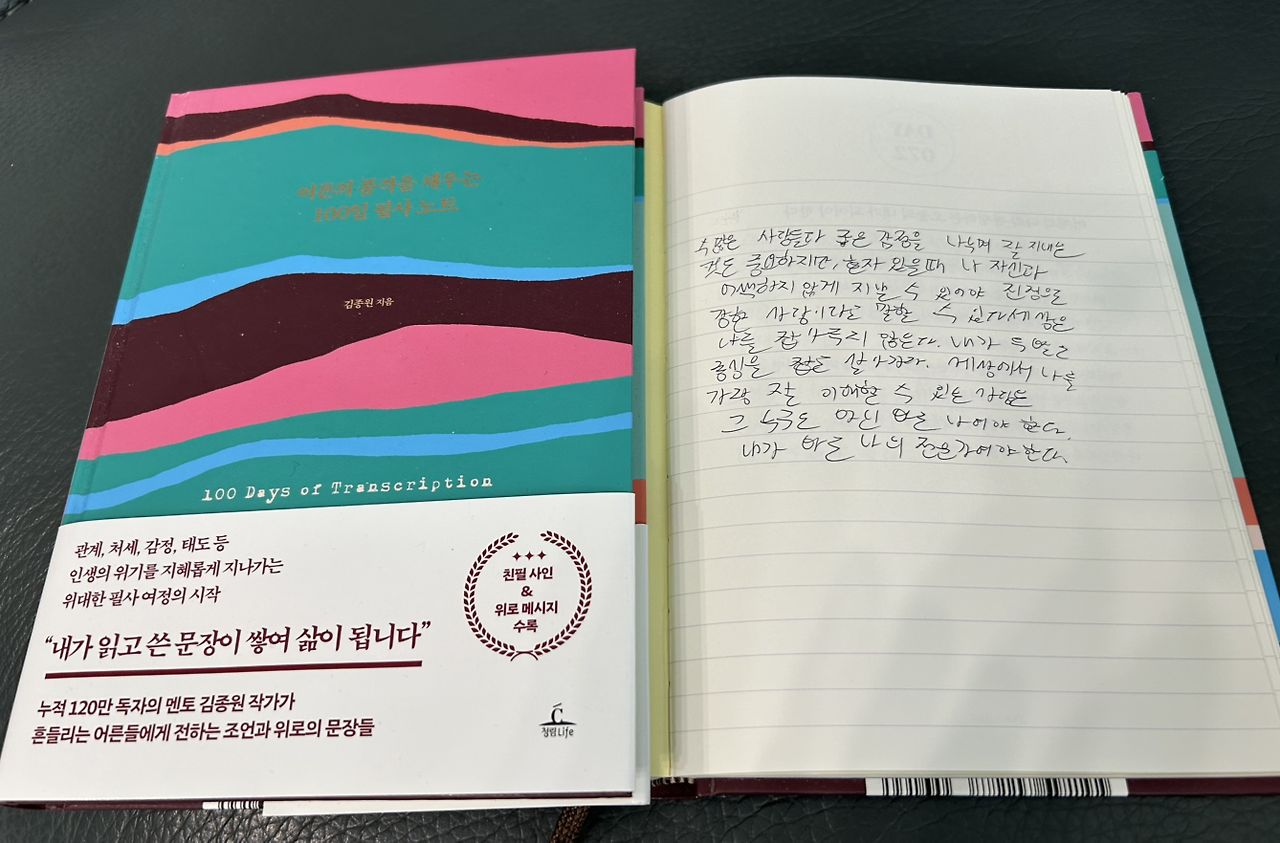 어른의 품격을 채우는
100일 필사 노트
김종원 지음
100 Days of Transcription
관계, 처세, 감정, 태도 등
인생의 위기를 지혜롭게 지나가는
위대한 필사 여정의 시작
친필 사인
&
위로 메시지
수록
“내가 읽고 쓴 문장이 쌓여 삶이 됩니다”
누적 120만 독자의 멘토 김종원 작가가
흔들리는 어른들에게 전하는 조언과 위로의 문장들
청림Life
DAY
072
수많은 사람들과 좋은 감정을 나누며 잘 지내는
것도 중요하지만, 혼자 있을때 나 자신과
어색하지 않게 지낼 수 있어야 진정으로
강한 사람이라고 말할 수 있다 세상은
나를 잘 모르지 않는다. 내가
중심을 잡고 살아가자. 세상에서 나를
가장 잘 이해할 수 있는 사람은
그 누구도 아닌 바로 나여야 한다.
내가 바로 나의 전문가여야한다.